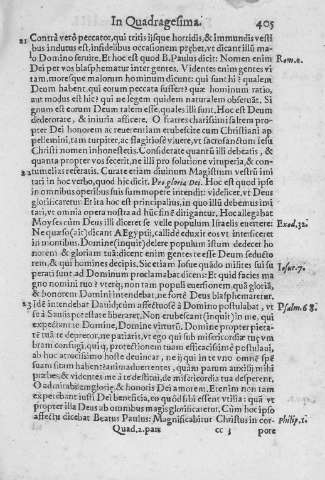 In Quadragesima. 405
21 Contrà verò peccator, qui tritis ijsque horridis, & immundis vesti
bus indutus est, infidelibus occasionem præbet, vt dicant illū ma-
lo Domino seruire. Et hoc est quod B. Paulus dicit: Nomen enim Rom. 2.
Dei per vos blasphematur inter gentes. Videntes enim gentes vi
tam, moresque malorum hominum dicunt: qui sunt hi? qualem
Deum habent, qui eorum peccata suffert? quæ hominum ratio,
aut modus est hic? qui nec legem quidem naturalem obseruāt. Si
gnum est eorum Deum talem esse, quales illi sunt. Hoc est Deum
dedecorate, & iniuria afficere. O fratres charissimi saltem pro-
pter Dei honorem ac reuerentiam erubescite cum Christiani ap
pellemini, tam turpiter, ac flagitiosè viuere, vt sacrosanctum Iesu
Christi nomen inhonestetis. Considerate quanta illi debeatis, &
quanta propter vos fecerit, ne illi pro solutione vituperia, & con-
22 tumelias referatis. Curate etiam diuinum Magistrum vestrū imi
tari in hoc verbo, quod hic dicit. Pro gloria Dei. Hoc est quod ipse
in omnibus operibus suis summopere intendit: videlicet, vt Deus
glorificaretur. Et in hoc est principalius, in quo illū debemus imi
tari, vt omnia opera nostra ad hūc finē dirigantur. Hoc allegabat
Moyses cùm Deus illi diceret se velle populum Israelis euertere: Exod. 32.
Ne quæso (ait) dicant AEgyptij, callidè eduxit eos vt interficeret
in montibus. Domine (inquit) delere populum istum dedecet ho
norem & gloriam tuā: dicent enim gentes te esse Deum seducto
rem, & qui homines decipis. Sic etiam Iosue quādo milites sui su
perati sunt ad Dominum proclamabat dicens: Et quid facies ma Iosue. 7.
gno nomini tuo? vterq, non tam populi euersionem, quā gloriā,
& honorem Domini intendebat, ne fortè Deus blasphemaretur.
23 Idē intendebat Dauid, cùm asstectuosè à Domino postulabat, vt Psalm. 68.
se à Saulis potestate liberaret. Non erubescant (inquit) in me, qui
expectant te Domine, Domine virtutū. Domine propter pieta-
tē tuā te deprecor, ne patiaris, vt ego qui sub misericordiæ tuę vm
bram confugi, quiq, protectionem tuam efficacissimè postulaui,
ab huc atrocissimo hoste deuincar, ne ij qui in te vno omnē spē
suam sitam habent
præbes, & videntes me à te destitui, de misericordia tua desperent.
O admirabilem gloriæ, & honoris Dei amorem. Etenim non tam
expectabant iusti Dei beneficia, eo quòd sibi essent vtilia: quā vt
propter illa Deus ab omnibus magis glorificaretur. Cùm hoc ipso
affectu dicebat Beatus Paulus: Magnificabitur Christus in cor- Philip. 1.
Quad. 2. pars cc 3 pore